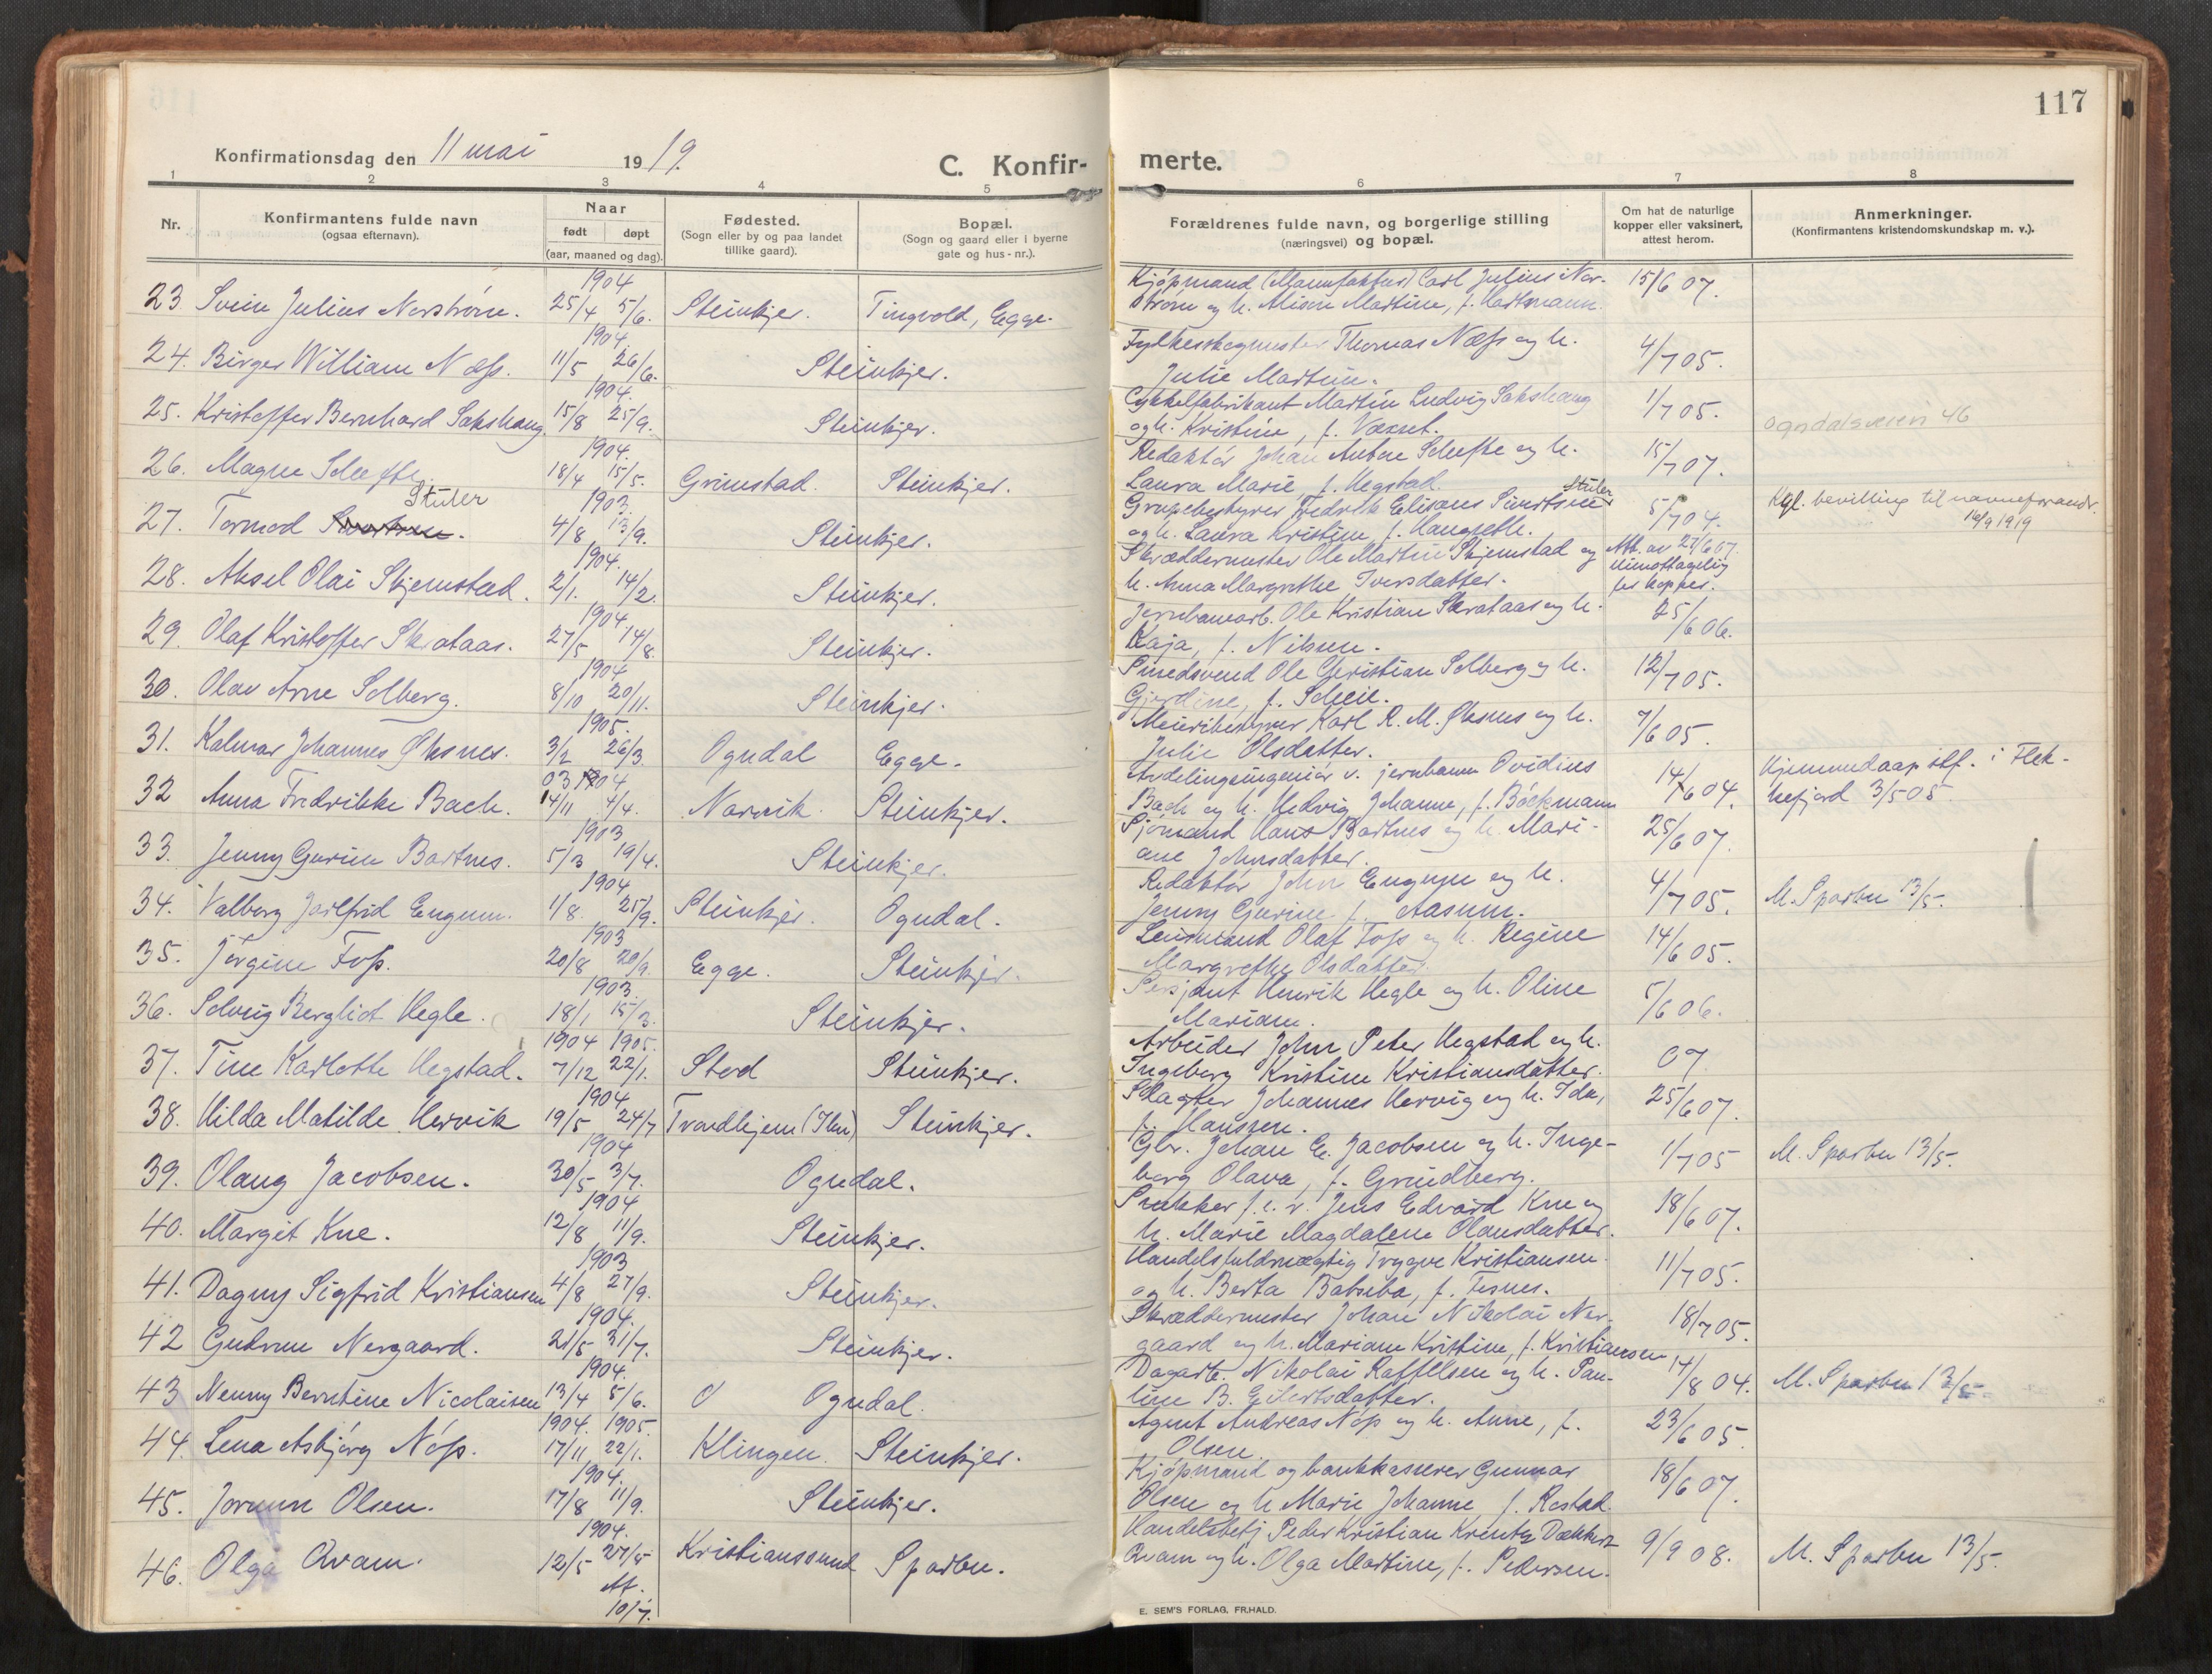 117
Konfirmationsdag den 11 mai 1919.
C. Konfir-
merte.
1 2 3 4 5 6 7 8
Nr.
Konfirmantens fulde navn
(ogsaa efternavn).
Naar
født døpt
(aar, maaned og dag).
Fødested.
(Sogn eller by og paa landet
tillike gaard).
Bopæl.
(Sogn og gaard eller i byerne
gate og hus-nr.).
Forældrenes fulde navn, og borgerlige stilling
(næringsvei) og bopæl.
Om hat de naturlige
kopper eller vaksinert,
attest herom.
Anmerkninger.
(Konfirmantens kristendomskundskap m. v.).
1904
23 Svein Julius Norstrøm. 25/4 5/6. Steinkjer. Tingvold, Egge.
Kjøpmand (Manufaktur) Carl Julius Nor- 15/6 07.
strøm og h. Martine, f. Hartmann.
1904
24. Birger William Næss. 11/5 26/6. Steinkjer.
Fylkesskogmester Thomas Næss og h. 4/7 05.
Julie Martine.
1904.
25. Kristoffer Bernhard Sakshaug. 15/8 25/9. Steinkjer.
Cykkelfabrikant Martin Ludvig Sakshaug 1/7 05.
og h. Kristine, f. Ogndalsveien 46
1904.
26. Magne Scheflo 18/4 15/5. Grimstad. Steinkjer.
Redaktør Johan Anton og h. 15/7 07.
Laura Marie, f. Hegstad.
Stuler
1903
27. Tormod 4/8 13/9. Steinkjer.
Grubebestyrer Fredrik Elisæus Stuler 5/7 04. Kgl. bevilling til navneforandr.
og h. Laura Kristine f. Haugseth. 16/9 1919
1904.
28. Aksel Olai Skjemstad. 2/1. 14/2. Steinkjer.
Skræddermester Ole Martin Skjemstad og Att. av 27/6 07.
h. Anna Margrethe Iversdatter. uimottagelig
for kopper.
1904
29. Olaf Kristoffer Skrataas. 27/5 14/8. Steinkjer.
Jernbanearb. Ole Kristian Skrataas og h. 25/6 06.
Kaja, f. Nilsen.
1904
30. Olav Arne Solberg. 8/10 20/11. Steinkjer.
Smedsvend Ole Christian Solberg og h. 12/7 05.
Gjerdine, f. Scheie.
1905.
31. Kalmar Johannes Øksnes. 3/2 26/3. Ogndal Egge.
Meieribestyrer Karl R. M. Øksnes og h. 7/6 05.
Julie Olsdatter.
03 1904
32 Anna Fredrikke Bach. 14/11 4/4. Narvik. Steinkjer.
Avdelingsingeniør v. jernbanen Ovidius 14/6 04. Hjemmedaap stf. i Flek-
Bach og h. Hedvig Johanne, f. Böckmann kefjord 3/5 05
1903
33. Jenny Gurine Bartnes. 5/3 19/4. Steinkjer.
Sjømand Hans Bartnes og h. Mari- 25/6 07.
ane Johnsdatter.
1904.
34. Valborg Jarlfrid Engum. 1/8. 25/9. Steinkjer. Ogndal.
Redaktør John Engum og h. 4/7 05. M. Sparbu 13/5.
Jenny Gurine f. Aasum.
1903
35. Jørgine Foss. 20/8 20/9. Egge. Steinkjer.
Lensmand Olaf Foss og h. Regine 14/6 05.
Margrethe Olsdatter.
1903
36. Solveig Bergliot Hegle. 18/1 15/3. Steinkjer.
Sersjant Henrik Hegle og h. Oline 5/6 06.
Mariane.
1904 1905.
37. Tine Karlotte Hegstad. 7/12 22/1. Stod Steinkjer.
Arbeider John Peter Hegstad og h. 07
Ingeborg Kristine Kristiansdatter.
1904
38. Hilda Matilde Hervik 19/5 24/7 Trondhjem (Ihlen) Steinkjer.
Slagter Johannes Hervig og h. Ida, 25/6 07.
f. Hanssen.
1904
39. Olaug Jacobsen. 30/5 3/7. Ogndal.
Gbr. Johan E. Jacobsen og h. Inge- 1/7 05 M. Sparbu 13/5.
borg Olava, f. Grundberg.
1904
40. Margit Kne. 12/8 11/9. Steinkjer.
Snekker f. e. v. Jens Edvard Kne og 18/6 07.
h. Marie Magdalene Olausdatter.
1903
41. Dagny Sigfrid Kristiansen 4/8 27/9. Steinkjer.
Handelsfuldmægtig Trygve Kristiansen 11/7 05.
og h. Berta Batseba, f. Tesnes.
1904.
42 Gudrun Nergaard. 21/5 31/7. Steinkjer.
Skræddermester Johan Nikolai Ner- 18/7 05.
gaard og h. Mariane Kristine, f. Kristiansen
1904.
43 Nenny Berntine Nicolaisen 13/4 5/6. Ogndal.
Dagarb. Nikolai Raffelsen og h. Pau- 14/8 04. M. Sparbu 13/5
line B. Eilertsdatter.
1904. 1905.
44. Lena Asbjørg Nøss. 17/11 22/1. Klingen. Steinkjer.
Agent Andreas Nøss og h. Anne, f. 23/6 05.
Olsen.
1904.
45. Jorunn Olsen. 17/8 11/9. Steinkjer.
Kjøpmand og bankkasserer Gunnar 18/6 07.
Olsen og h. Marie Johanne f. Rostad.
1904.
46. Olga Qvam. 12/5 27/5 Kristianssund Sparbu.
Handelsbetj Peder Kristian 9/9 08. M. Sparbu 13/5.
Qvam og h. Olga Martine, f. Pedersen.
10/7.
E. SEM'S FORLAG, FR.HALD.